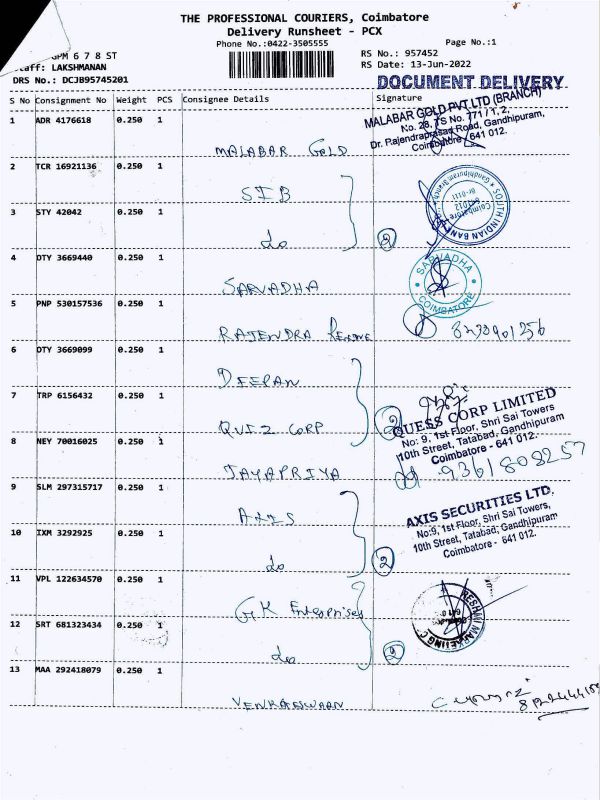 THE PROFESSIONAL COURIERS, Coimbatore
Delivery Runsheet - PCX
Phone No.:0422-3505555
Page No.:1
GPM 6 7 8 ST
RS No.: 957452
Staff: LAKSHMANAN
RS Date: 13-Jun-2022
DRS No.: DCJB95745201
DOCUMENT DELIVERY
S No Consignment No Weight PCS Consignee Details Signature
1 ADR 4176618 0.250 1
MALABAR GOLD PVT LTD (BRANCH)
No. 28, TS No. 771 / 1, 2,
Dr. Rajendraprasad Road, Gandhipuram,
Coimbatore - 641 012.
MALABAR GOLD
2 TCR 16921136 0.250 1
SIB
SOUTH INDIAN BANK
Gandhipuram Branch
Br-0111
Coimbatore
641012
3 STY 42042 0.250 1
do
2
4 OTY 3669440 0.250 1
SARVADHA
SARVADHA
COIMBATORE
5 PNP 530157536 0.250 1
RAJENDRA
6 OTY 3669099 0.250 1
DEEPAN
7 TRP 6156432 0.250 1
QUEZ CORP
2
QUESS CORP LIMITED
No: 9, 1st Floor, Shri Sai Towers
10th Street, Tatabad, Gandhipuram
Coimbatore - 641 012.
8 NEY 70016025 0.250 1
JAYAPRIYA
9361808257
9 SLM 297315717 0.250 1
AXIS
AXIS SECURITIES LTD.
No:9, 1st Floor, Shri Sai Towers,
10th Street, Tatabad, Gandhipuram
Coimbatore - 641 012.
10 IXM 3292925 0.250 1
do
2
11 VPL 122634570 0.250 1
GK Enterprises
RESHMI MARKETING C
12 SRT 681323434 0.250 1
do
2
13 MAA 292418079 0.250 1
VENKATESWARN